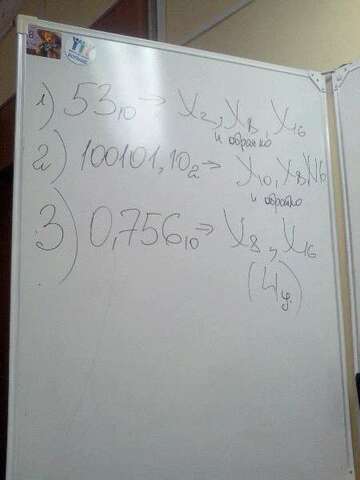 1) 53₁₀ → X₂, X₈, X₁₆
и обратно
2) 100101,10₂ → X₁₀, X₈, X₁₆
и обратно
3) 0,756₁₀ → X₈, X₁₆
(4ц)